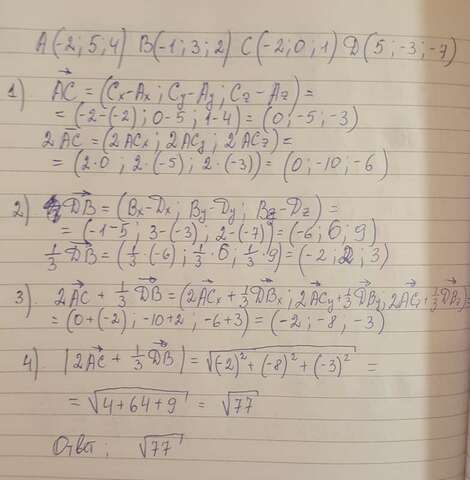 A(-2;5;4) B(-1;3;2) C(-2;0;1) D(5;-3;-7)
1) AC = (Cx-Ax; Cy-Ay; Cz-Az) =
= (-2-(-2); 0-5; 1-4) = (0; -5; -3)
2AC = (2ACx; 2ACy; 2ACz) =
= (2·0; 2·(-5); 2·(-3)) = (0; -10; -6)
2) DB = (Bx-Dx; By-Dy; Bz-Dz) =
= (-1-5; 3-(-3), 2-(-7)) = (-6; 6; 9)
1/3 DB = (1/3·(-6); 1/3·6, 1/3·9) = (-2; 2; 3)
3) 2AC + 1/3 DB = (2ACx + 1/3 DBx; 2ACy + 1/3 DBy; 2ACz + 1/3 DBz)
= (0+(-2); -10+2, -6+3) = (-2; -8; -3)
4) |2AC + 1/3 DB| = √(-2)² + (-8)² + (-3)² =
= √4+64+9 = √77
Ответ: √77